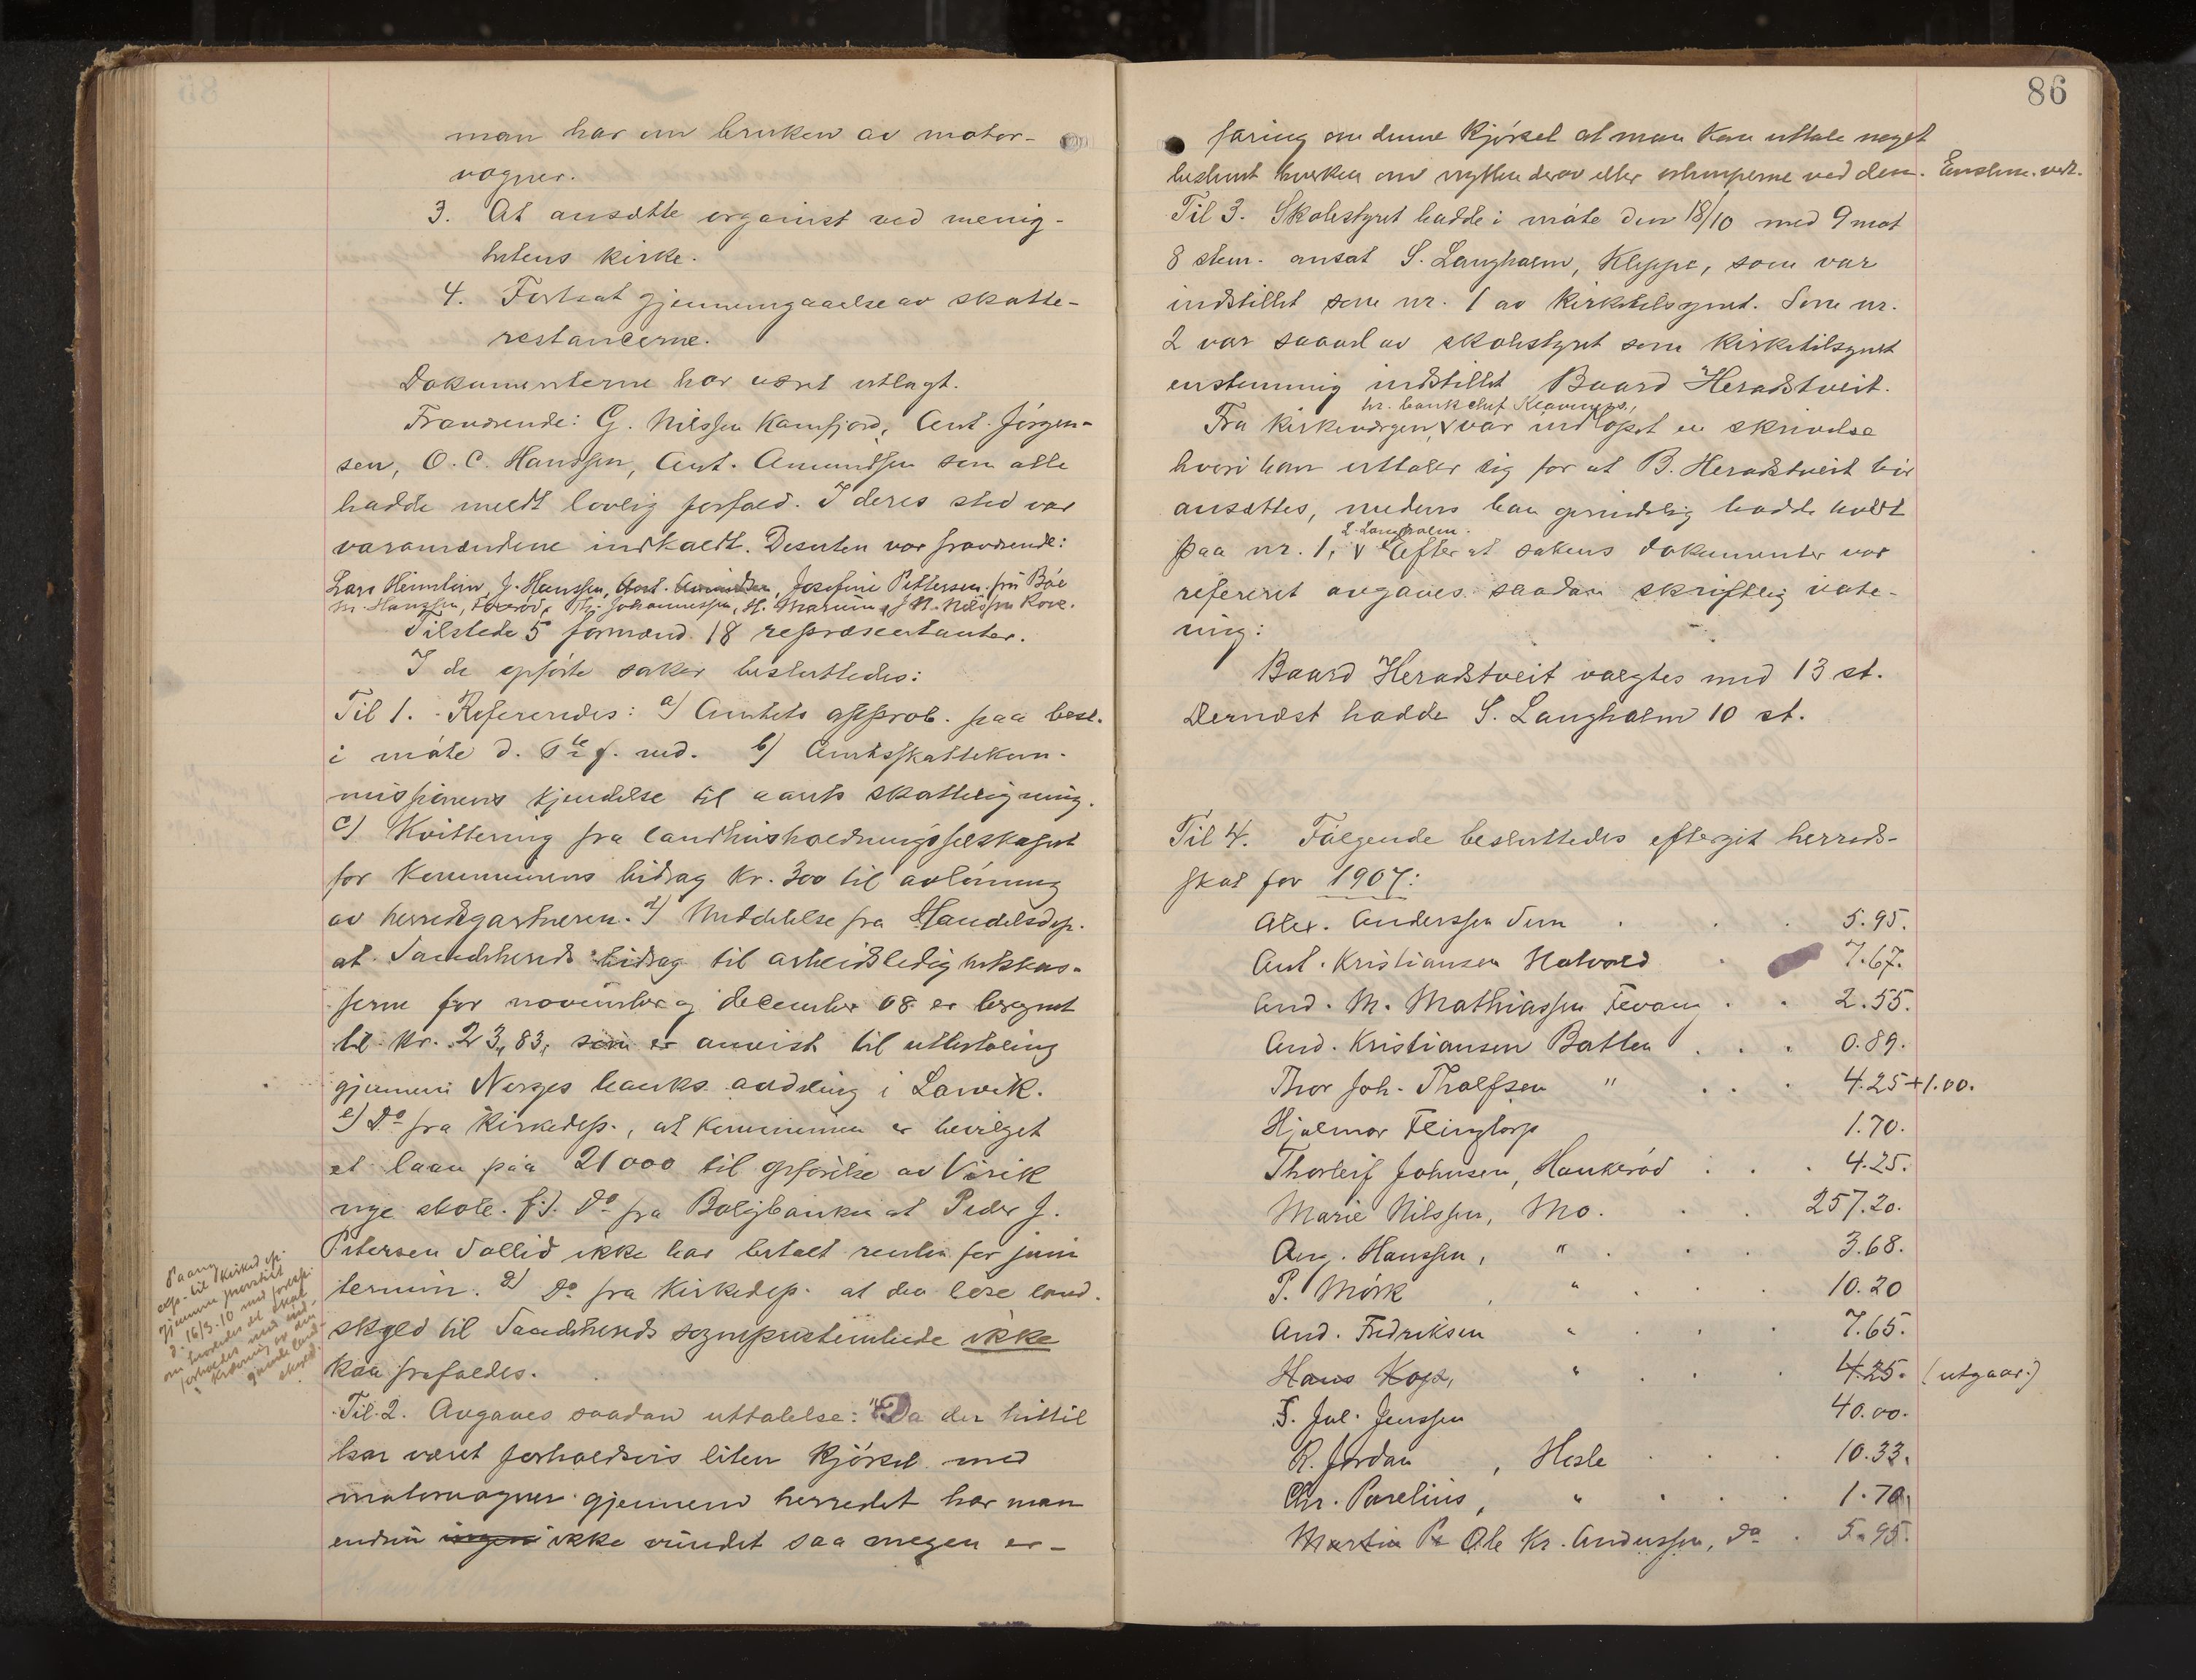 man har om bruken av motor-
vogner.
3. At ansætte organist ved menig-
hetens kirke.
4. Fortsat gjennemgaaelse av skatte-
restancerne.
Dokumenterne har været utlagt.
Fraværende: G. Nilssen Kamfjord, Ant. Jörgen-
sen, O. C. Hanssen, Ant. Amundssen som alle
hadde meldt lovlig forfald. I deres sted var
varamændene indkaldt. Desuten var fraværende:
Lars Heimstein, J. Hanssen, Josefine Pettersen, frü Bøe
M. Hanssen, Th. Johannessen, H. Marum, J. N. Nilssen Kove.
Tilstede 5 formænd 18 repræsentanter.
I de opförte saker besluttedes:
Til 1. Refereredes: a) Amtets approb. paa besl.
i möte d. 6te f. md. b) Amtsskattekom-
missionens kjendelse til aarets skatteligning.
c) Kvittering fra landhusholdningsselskapet
for kommunens bidrag kr. 300 til avlönning
av herredsgartneren. d) Meddelelse fra Handelsdep.
at Sandeherreds bidrag til arbeidsledighetskas-
serne for november og december 08 er beregnet
til kr. 23,83, som er anvist til utbetaling
gjennem Norges banks avdeling i Larvik.
e) Do fra Kirkedep., at kommunen er bevilget
et laan paa 21000 til opförelse av Virik
nye skole. f.) Do fra Boligbanken at Peder J.
Petersen Sollid ikke har betalt renten for juni
termin. g) Do fra Kirkedep. at den lese land-
skyld til Sandeherreds sogneprestembede ikke
kan frafaldes.
Paany
exp. til Kirkedep.
gjennem provstiet
d. 16/3-10 med foresp.
om hvorledes det skal
forholdes med ind-
krævning av den
gjenstd. land-
skyld.
Til 2. Avgaves saadan uttalelse: "Da der hittil
har været forholdsvis liten kjörsel med
motorvogner gjennem herredet har man
endnu ingen ikke vundet saa megen er-
86
faring om denne kjörsel at man kan uttale noget
bestemt hverken om nytten derav eller ulemperne ved den. Enstem. vedt.
Til 3. Skolestyret hadde i möte den 18/10 med 9 mot
8 stem. ansat S. Langholm, Kleppe, som var
indstillet som nr. 1 av kirketilsynet. Som nr.
2 var saavel av skolestyret som kirketilsynet
enstemmig indstillet Baard Heradstveit.
hr. bankchef Klavenes,
Fra kirkevergen, v var indlöpet en skrivelse
hvori han uttaler sig for at B. Heradstveit bör
ansættes, medens han oprindelig hadde holdt
S. Langholm.
paa nr. 1, v Efter at sakens dokumenter var
refereret avgaves saadan skriftlig vote-
ring:
Baard Heradstveit valgtes med 13 st.
Dernæst hadde S. Langholm 10 st.
Til 4. Fölgende besluttedes eftergit herreds-
skat for 1907:
Alex. Anderssen Sem . . . 5.95.
Ant. Kristiansen Hotvedt . 7.67.
And. M. Mathiassen Fevang . . 2.55.
And. Kristiansen Botten . . . 0.89.
Thor Joh. Tholfsen " . . . 4.25+1.00.
Hjalmar Flingtorp 1.70.
Thorleif Johnsen, Haukeröd . . . 4.25.
Marie Nilssen, Mo. . . 257.20.
Aug. Hanssen, " . . . 3.68.
P. Mörk, " . . . 10.20
And. Fredriksen " . . . 7.65.
Hans Kopz, " . . . 4.25. (utgaar.)
S. Jul. Jenssen 40.00.
R. Jordan, Hasle . . . 10.33.
Chr. Parelius, " . . . 1.70.
Martin P Ole Kr. Anderssen, Do . 5.95.